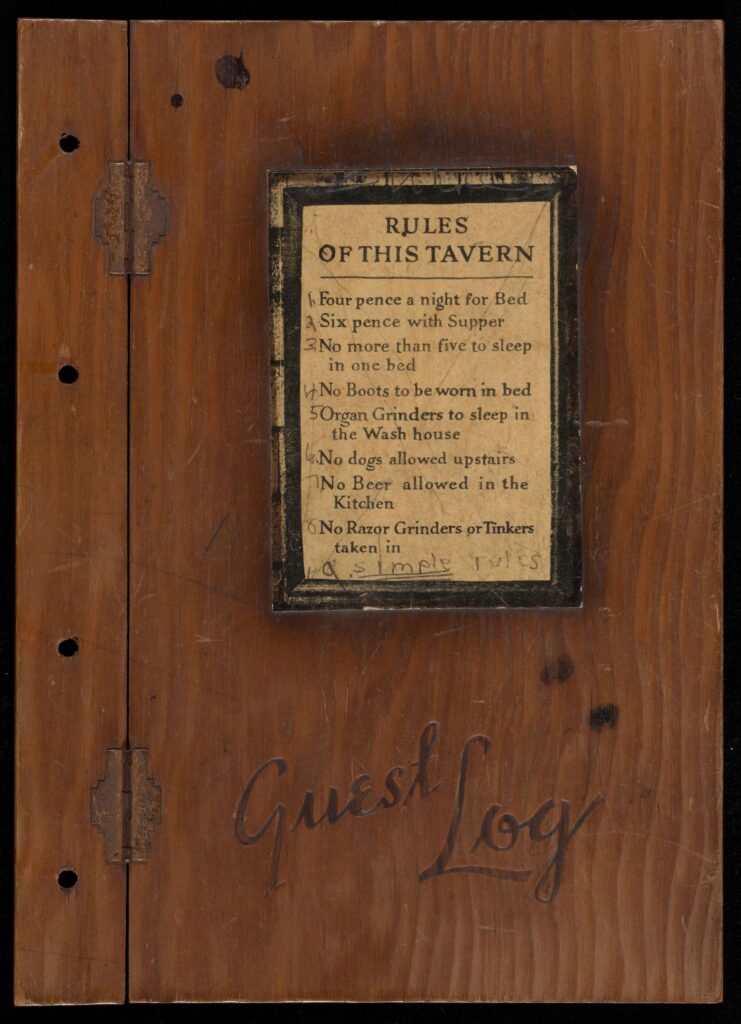 RULES
OF THIS TAVERN
1. Four pence a night for Bed
2. Six pence with Supper
3. No more than five to sleep
in one bed
4 No Boots to be worn in bed
5 Organ Grinders to sleep in
the Wash house
6. No dogs allowed upstairs
7 No Beer allowed in the
Kitchen
8 No Razor Grinders or Tinkers
taken in
9. simple rules
Guest
Log